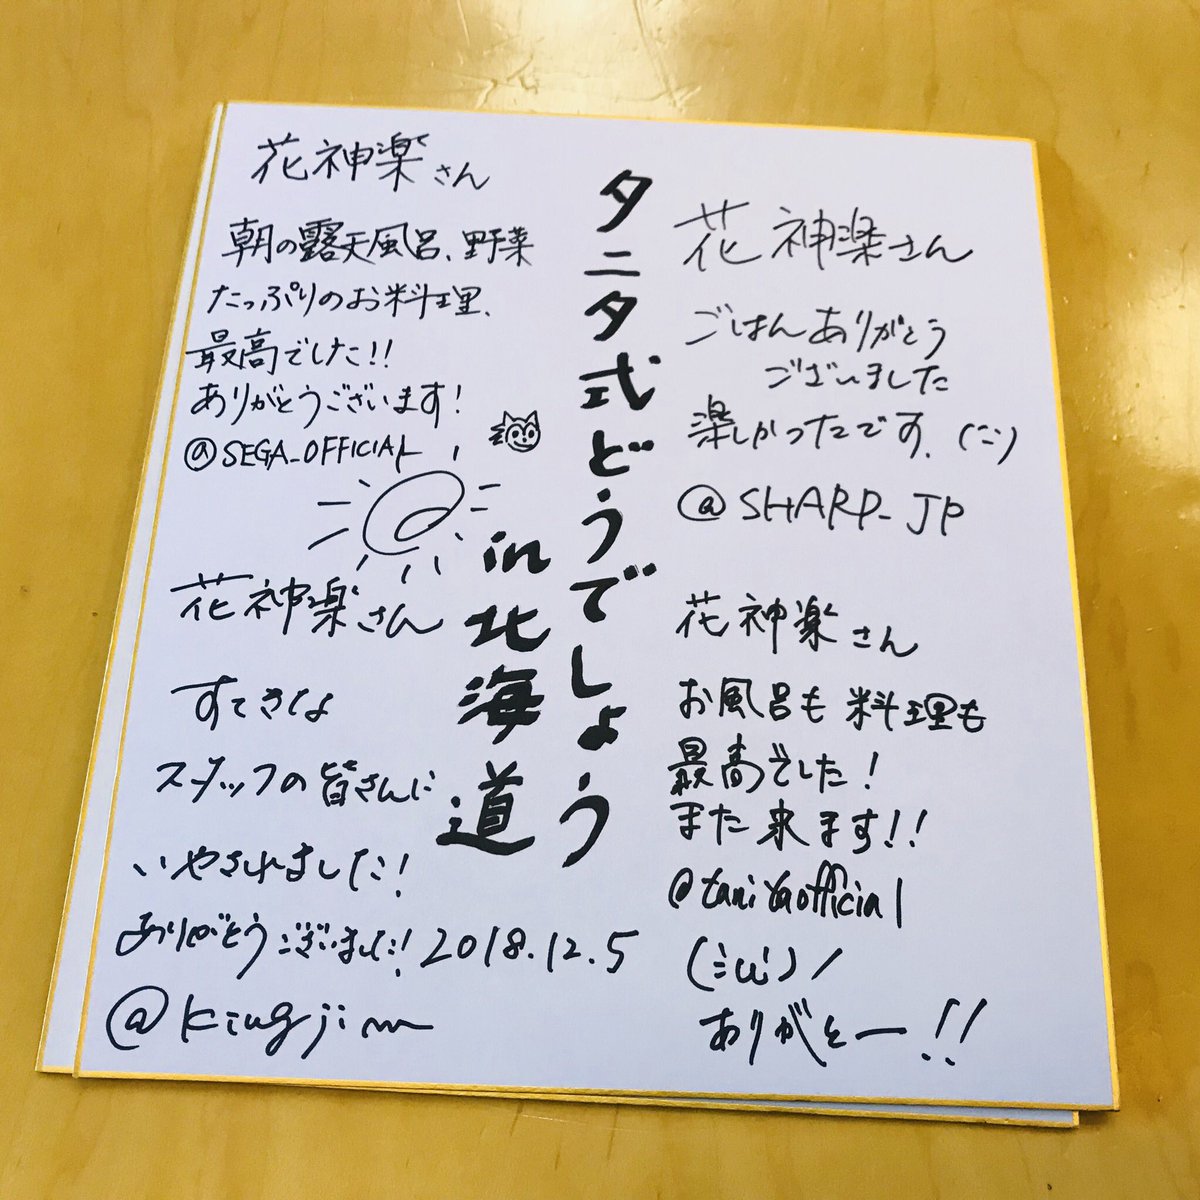 タニタ式どうでしょう
in北海道
花神楽さん
朝の露天風呂、野菜
たっぷりのお料理、
最高でした!!
ありがとうございます!
@SEGA_OFFICIAL
花神楽さん
ごはんありがとう
ございました
楽しかったです。
@SHARP_JP
花神楽さん
すてきな
スタッフの皆さんに
いやされました!
ありがとうございました! 2018.12.5
@kingjim
花神楽さん
お風呂も料理も
最高でした!
また来ます!!
@tanitaofficial
ありがとー!!